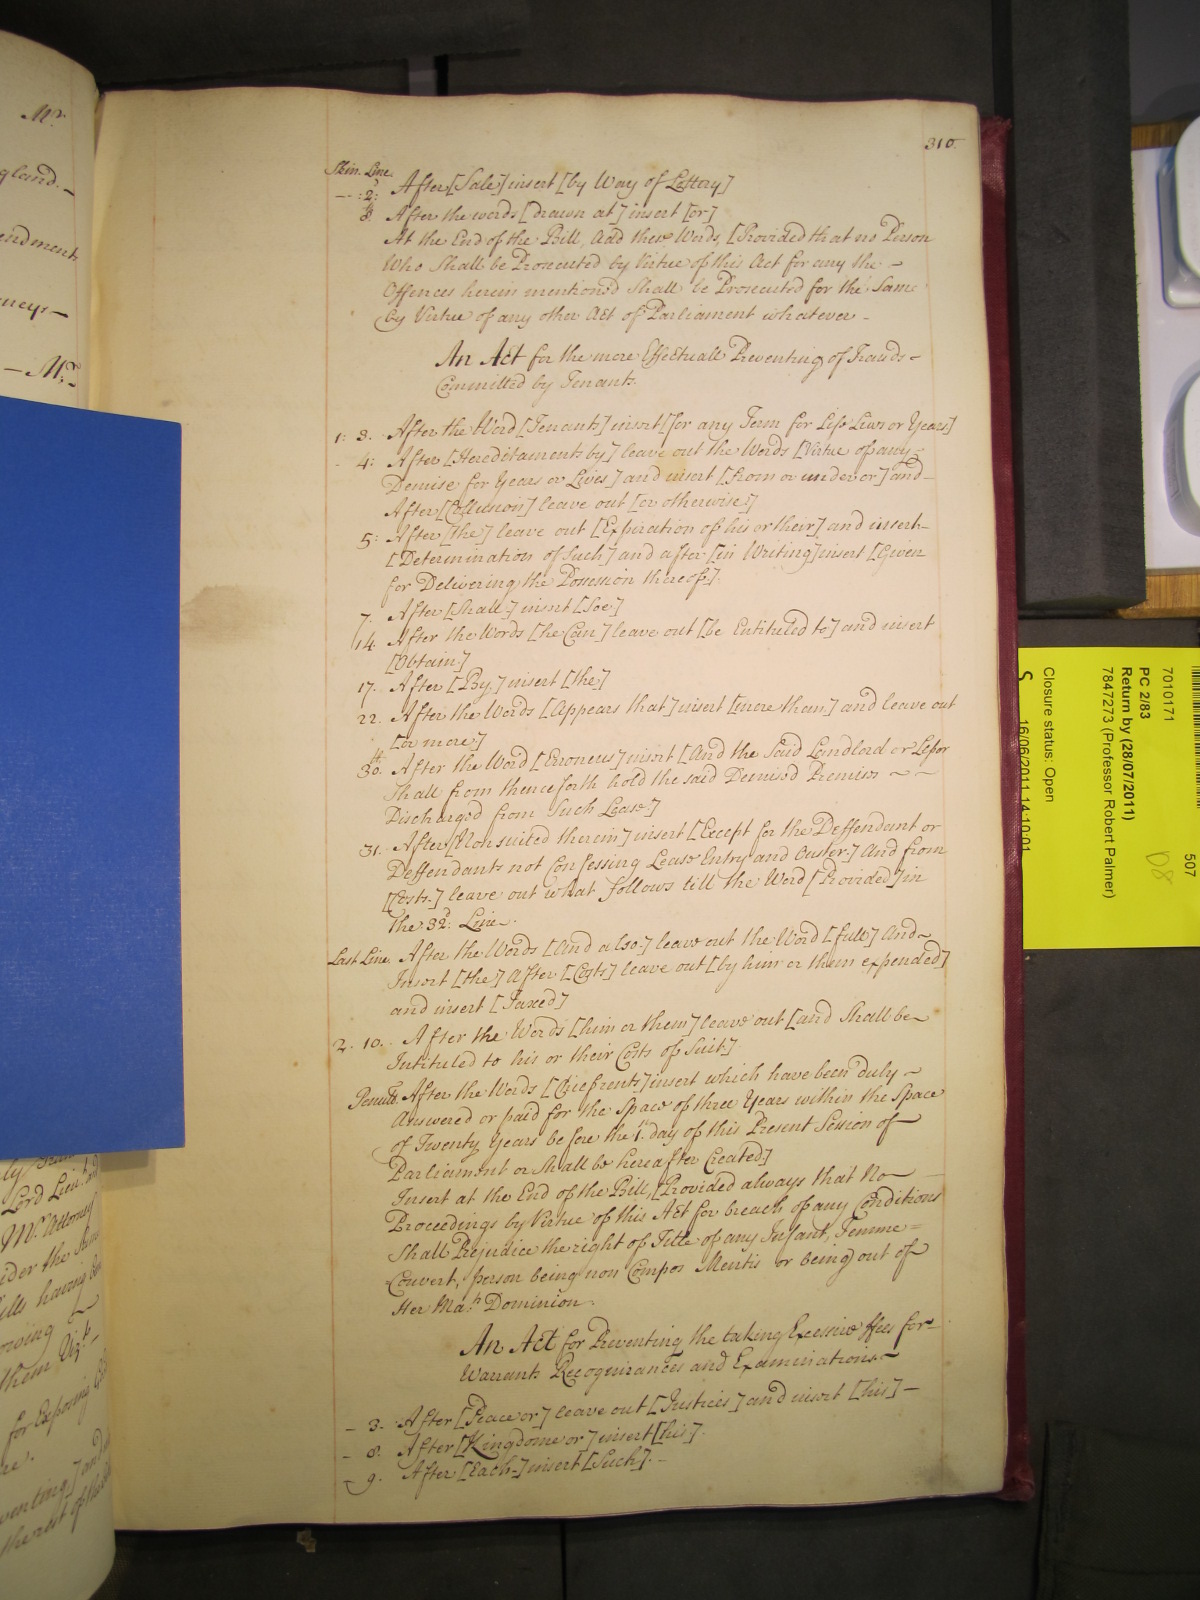 310.
Skin. Line.
- - 2: After [Sale] insert [by Way of Lottery]
8 After the words [drawn at] insert [or]
At the End of the Bill, Add these Words, [Provided that no Person
Who Shall be Prosecuted by Virtue of this Act for any the -
Offences herein mentioned Shall be Prosecuted for the Same
by Virtue of any other Act of Parliament whatever -
An Act for the more Effectuall Preventing of Frauds -
Committed by Tenants.
1: 3. After the Word [Tenants] insert [for any Term for Life Lives or Years]
- 4: After [Hereditaments by] leave out the Words [Virtue of any -
Demise for Years or Lives] and insert [from or under or] and -
After [Collusion] leave out [or otherwise]
5: After [the] leave out [Expiration of his or their] and insert -
[Determination of Such] and after [in Writing] insert [Given
for Delivering the Possession thereof].
7. After [Shall] insert [Soe]
14. After the Words [he Can] leave out [be Entituled to] and insert
[Obtain]
17. After [By] insert [the]
22. After the Words [Appears that] insert [more than] and leave out
[or more]
30th. After the Word [Erroneus] insert [And the Said Landlord or Lessor
Shall from thenceforth hold the said Demised Premisses
Discharged from Such Lease]
31. After [Nonsuited therein] insert [Except for the Deffendant or
Deffendants not Confessing Lease Entry and Ouster] And from
[Costs.] leave out what follows till the Word [Provided] in
the 32d. Line -
Last Line. After the Words [And also] leave out the Word [full] And -
Insert [the] After [Costs] leave out [by him or them expended]
and insert [Taxed]
2. 10. After the Words [him or them] leave out [and Shall be
Intituled to his or their Costs of Suit]
Penult. After the Words [Chiefrents] insert which have been duly -
Answered or paid for the Space of three Years within the Space
of Twenty Years before the 1st. day of this Present Session of -
Parliament or Shall be hereafter Created]
Insert at the End of the Bill, [Provided always that No -
Proceedings by Virtue of this Act for breach of any Conditions
Shall Prejudice the right of Title of any Infant, Femme =
Convert, person being non Compos Mentis or being out of
Her Mats. Dominion.
An Act for Preventing the taking Excessive ffees for -
Warrants Recognizances and Examinations. -
- 3. After [Peace or] leave out [Justices] and insert [his] -
- 8. After [Kingdome or] insert [his].
- 9. After [Each] insert [Such]. -
Mr.
gland. -
endment
- Mr.
Lord Lieut. and
Mr. Attorney
ider the Same
ills having been
owing
them Vizt. -
for Exposing
venting] and
the rest of the
507
7010171
PC 2/83
Return by (28/07/2011)
7847273 (Professor Robert Palmer)
D8
Closure status: Open
S 16/06/2011 14:10:01